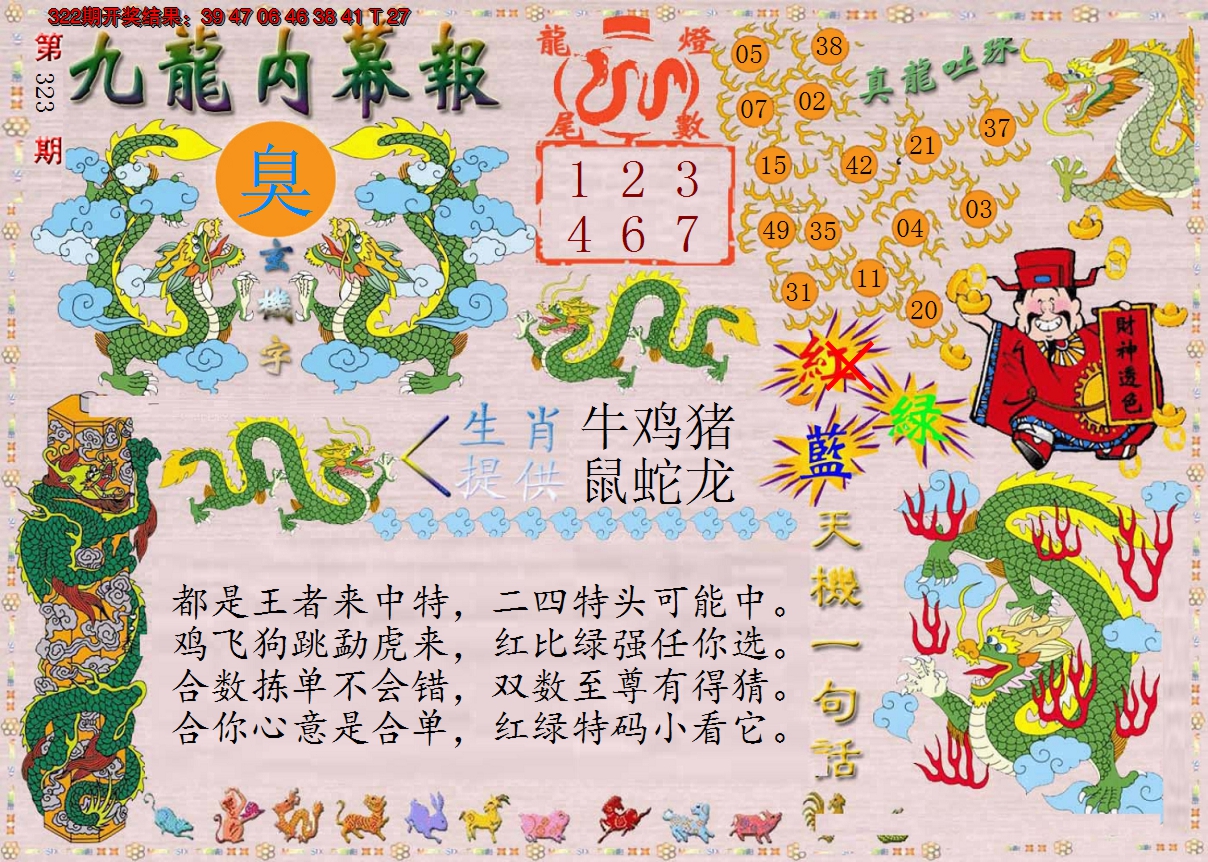 322期开奖结果：39 47 06 46 38 41 T 27
第
323
期
九龍内幕報
臭
玄
機
字
龍 燈
尾 數
1 2 3
4 6 7
真龍吐珠
05
38
07
02
15
42
21
37
49
35
04
03
31
11
20
紅
绿
藍
財神透色
生肖 牛鸡猪
提供 鼠蛇龙
天機一句話
都是王者来中特，二四特头可能中。
鸡飞狗跳勐虎来，红比绿强任你选。
合数拣单不会错，双数至尊有得猜。
合你心意是合单，红绿特码小看它。